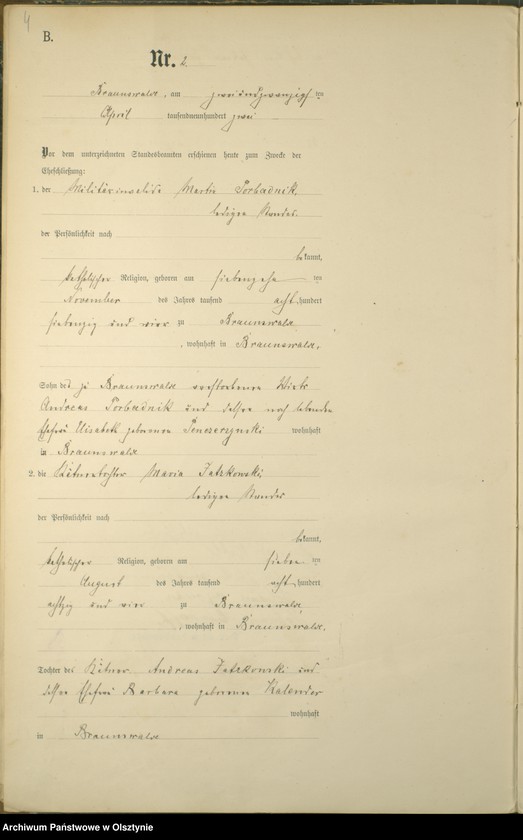 4
B.
Nr. 2.
Braunswalde, am zweiundzwanzigsten
April tausendneunhundert zwei
Vor dem unterzeichneten Standesbeamten erschienen heute zum Zwecke der
Eheschließung:
1. der Militärinvalide Martin Porbadnik,
ledigen Standes.
der Persönlichkeit nach
bekannt,
katholischer Religion, geboren am siebenzehnten
November des Jahres tausend acht hundert
siebenzig und vier zu Braunswalde
, wohnhaft in Braunswalde,
Sohn des zu Braunswalde verstorbenen Wirts
Andreas Porbadnik und dessen noch lebenden
Ehefrau Elisabeth geborenen wohnhaft
in Braunswalde
2. die Kätnertochter Maria Jatzkowski,
ledigen Standes
der Persönlichkeit nach
bekannt,
katholischer Religion, geboren am sieben ten
August des Jahres tausend acht hundert
achtzig und vier zu Braunswalde
, wohnhaft in Braunswalde,
Tochter des Kätner Andreas Jatzkowski und
dessen Ehefrau Barbara geborenen Kalender
wohnhaft
in Braunswalde
Archiwum Państwowe w Olsztynie